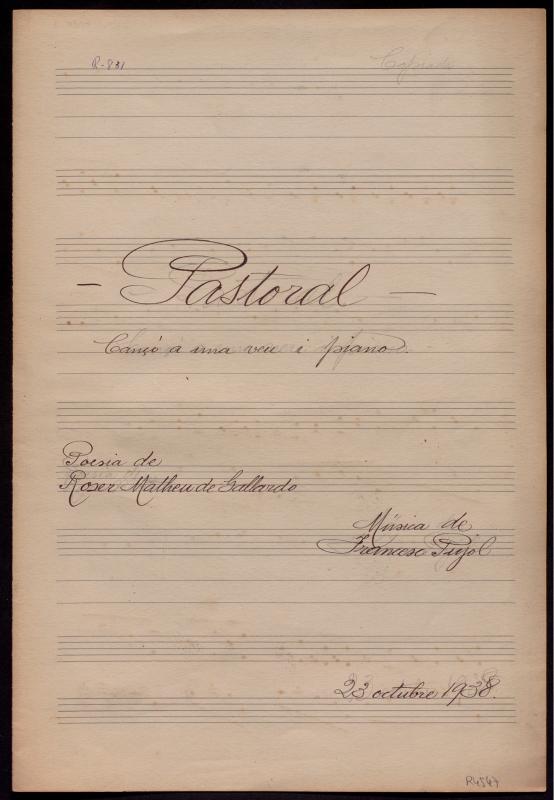 R-831
Copiada
- Pastoral -
Cançó a una veu i piano.
Poesia de
Roser Matheu de Gallardo
Música de
Francesc Pujol
23 octubre 1938.
R4547